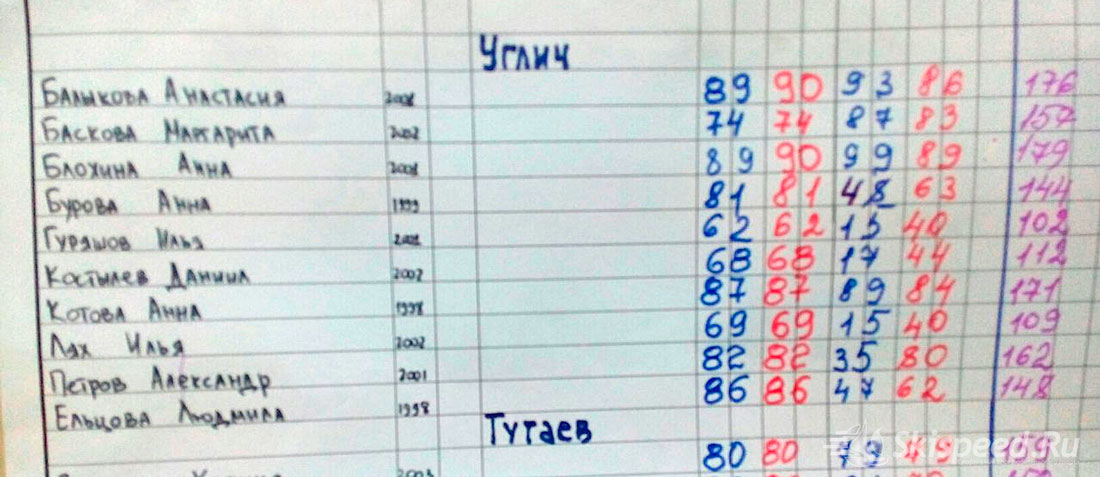 Углич
Балыкова Анастасия 89 90 93 86 176
Баскова Маргарита 2002 74 74 87 83 157
Блохина Анна 89 90 99 89 179
Бурова Анна 1999 81 81 48 63 144
Гуряшов Илья 62 62 15 40 102
Костылев Даниил 2002 68 68 17 44 112
Котова Анна 1998 87 87 89 84 171
Лях Илья 2002 69 69 15 40 109
Петров Александр 2001 82 82 35 80 162
Ельцова Людмила 1998 86 86 47 62 148
Тутаев
80 80 79
Skispeed.Ru